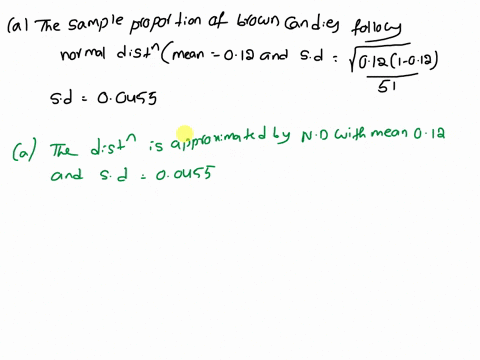 (a) The sample proportion of brown candies follows
normal distⁿ (mean = 0.12 and s.d = √0.12(1-0.12)
51
s.d = 0.0455
(a) The distⁿ is approximated by N.D with mean 0.12
and s.d = 0.0455